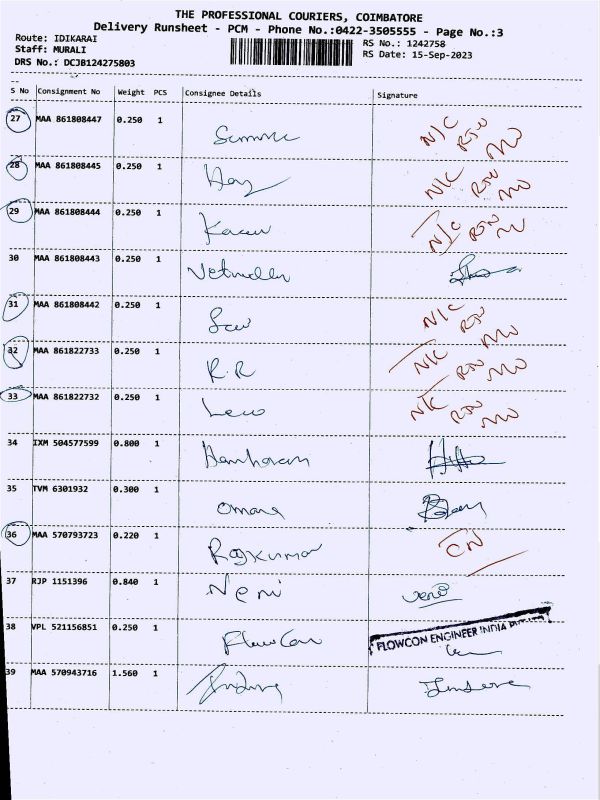 THE PROFESSIONAL COURIERS, COIMBATORE
Delivery Runsheet - PCM - Phone No.:0422-3505555 - Page No.:3
Route: IDIKARAI
RS No.: 1242758
Staff: MURALI
RS Date: 15-Sep-2023
DRS No.: DCJB124275803
S No Consignment No Weight PCS Consignee Details Signature
27 MAA 861808447 0.250 1 N/C
28 MAA 861808445 0.250 1 N/C
29 MAA 861808444 0.250 1 N/C
30 MAA 861808443 0.250 1
31 MAA 861808442 0.250 1 N/C
32 MAA 861822733 0.250 1 R.R N/C
33 MAA 861822732 0.250 1 N/C
34 IXM 504577599 0.800 1
35 TVM 6301932 0.300 1
36 MAA 570793723 0.220 1 Rajkumar CN
37 RJP 1151396 0.840 1 Neni
38 VPL 521156851 0.250 1 FlowCon FLOWCON ENGINEER INDIA
39 MAA 570943716 1.560 1